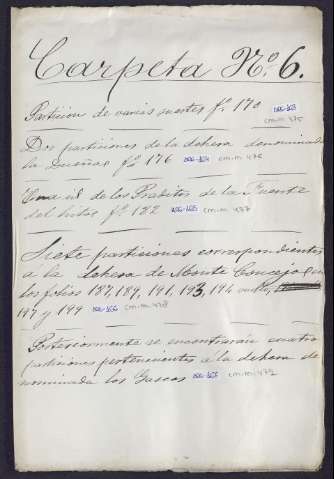 Carpeta Nº 6.
Particion de varias suertes fº 170
cm.m 475
Dos particiones de la dehesa denominada
la Dueñas fº 176 cm.m 476
Una id de los Praditos de la Fuente
del fº 182 cm.m 477
Siete particiones correspondientes
a la dehesa de Monte Concejo
los folios 187, 189, 191, 193, 194 vuelto,
197 y 199 cm.m 478
Posteriormente se encontrarán cuatro
particiones pertenecientes á la dehesa de
nominada los Gascos cm.m 479